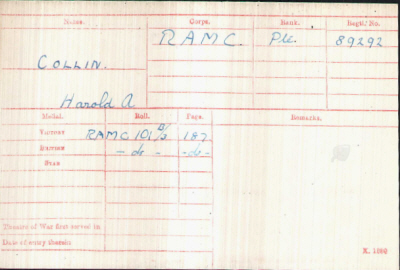 Name. Corps. Rank. Regtl. No.
COLLIN. RAMC. Pte. 89292
Harold A
Medal. Roll. Page. Remarks.
VICTORY RAMC 101 B/ 187
BRITISH - do - - do -
STAR
Theatre of War first served in
Date of entry therein
K. 1380